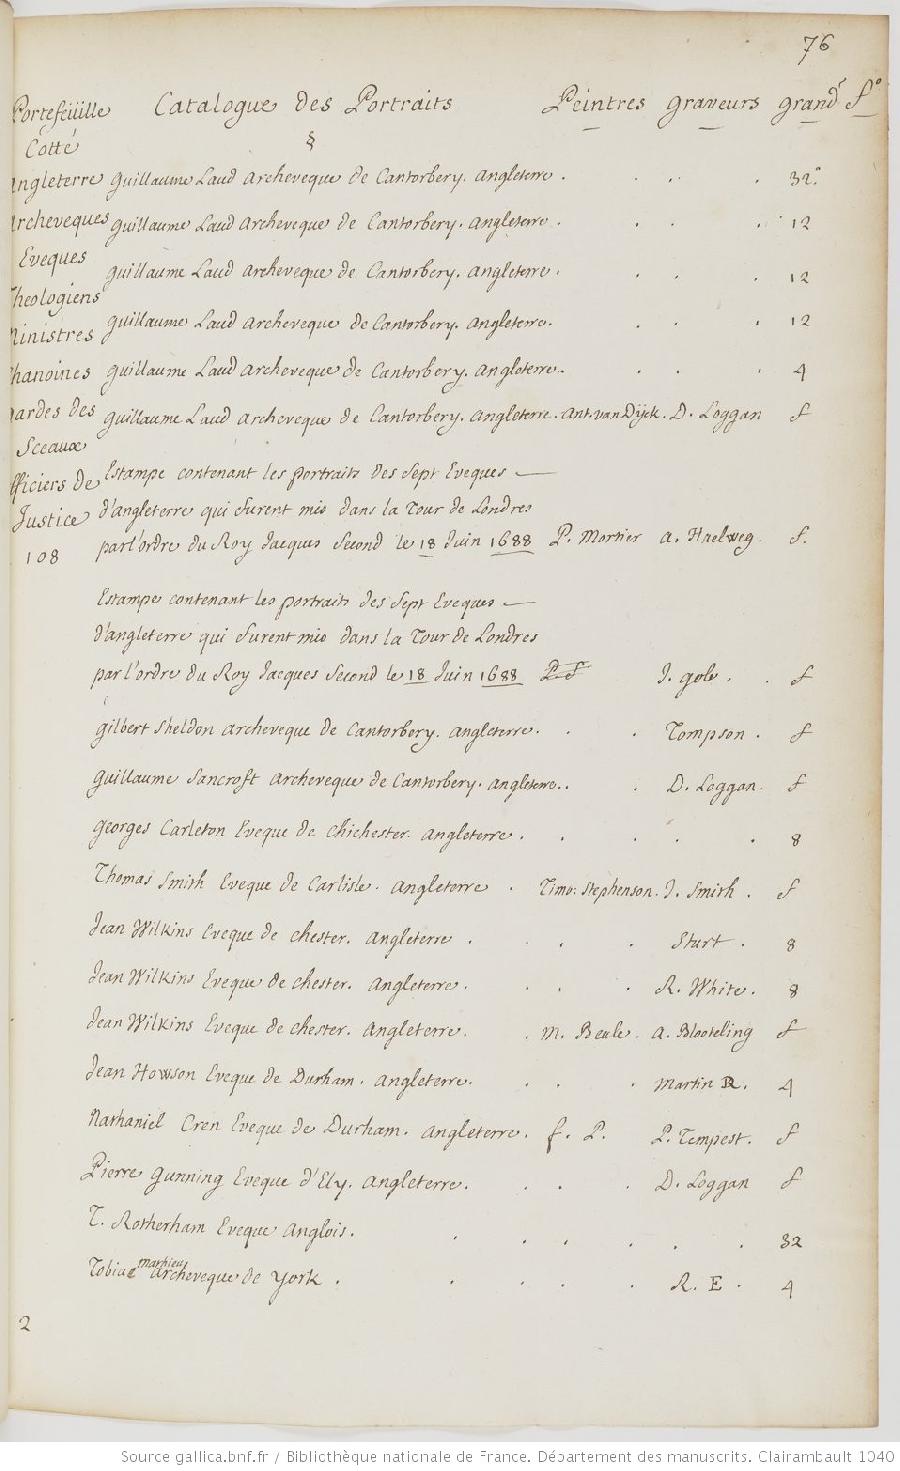 76
Portefeüille Catalogue des Portraits Peintres Graveurs grandr fo
Cotté §
Angleterre Guillaume Laud Archeveque de Cantorbery. Angleterre . . . . 32o
Archeveques Guillaume Laud Archeveque de Cantorbery. Angleterre . . . . 12
Eveques Guillaume Laud Archeveque de Cantorbery. Angleterre . . . . 12
Theologiens
Ministres Guillaume Laud Archeveque de Cantorbery. Angleterre. . . . 12
Chanoines Guillaume Laud Archeveque de Cantorbery. Angleterre. . . . 4
gardes des Guillaume Laud Archeveque de Cantorbery. Angleterre. Ant. van Dyck. D. Loggan f
Sceaux
Officiers de Estampe contenant les portraits des Sept Eveques
Justice d'angleterre qui furent mis dans la Tour de Londres
108 par l'ordre du Roy Jacques Second le 18 Juin 1688 P. Mortier A. Haelweg f.
Estampe contenant les portraits des Sept Eveques
d'angleterre qui furent mis dans la Tour de Londres
par l'ordre du Roy Jacques Second le 18 Juin 1688 J. gole . . f
Gilbert Sheldon Archeveque de Cantorbery. Angleterre. . . Tompson . f
Guillaume Sancroft Archeveque de Cantorbery. Angleterre. . . D. Loggan. f
Georges Carleton Eveque de Chichester. Angleterre . . . . . 8
Thomas Smith Eveque de Carlisle. Angleterre . Timo: Stephenson. J. Smith . f
Jean Wilkins Eveque de Chester. Angleterre . . . Sturt . 8
Jean Wilkins Eveque de Chester. Angleterre. . . . R. White. 8
Jean Wilkins Eveque de Chester. Angleterre. . M. Beale. A. Blooteling f
Jean Howson Eveque de Durham. Angleterre. . . . Martin R. 4
Nathaniel Cren Eveque de Durham. Angleterre. f. P. P. Tempest. f
Pierre Gunning Eveque d'Ely. Angleterre. . . . D. Loggan f
T. Rotherham Eveque Anglois. . . . . . . 32
Tobie mathieu Archeveque de York . . . . . R. E . 4
2
Source gallica.bnf.fr / Bibliothèque nationale de France. Département des manuscrits. Clairambault 1040